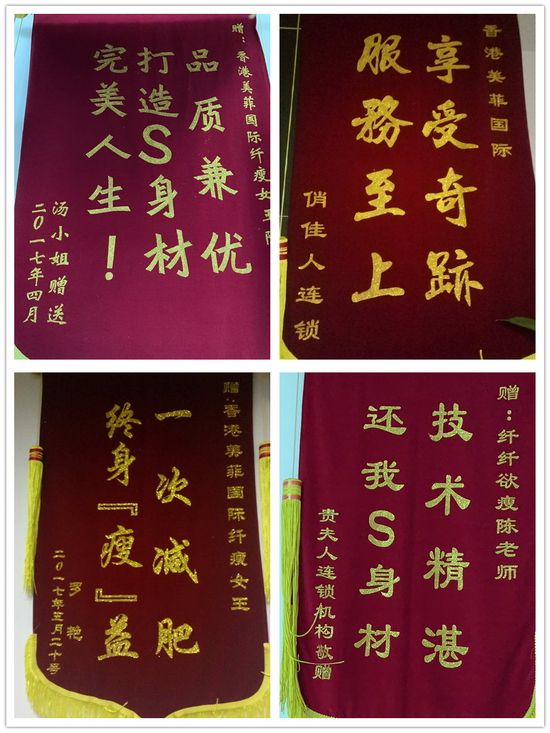 赠：香港美菲国际纤瘦女王
品质兼优
打造S身材
完美人生！
汤小姐赠送
二〇一七年四月
香港美菲国际
享受奇跡
服務至上
俏佳人连锁
赠：香港美菲国际纤瘦女王
一次减肥
终身『瘦』益
罗艳
二〇一七年三月二十号
赠：纤纤欲瘦陈老师
技术精湛
还我S身材
贵夫人连锁机构敬赠